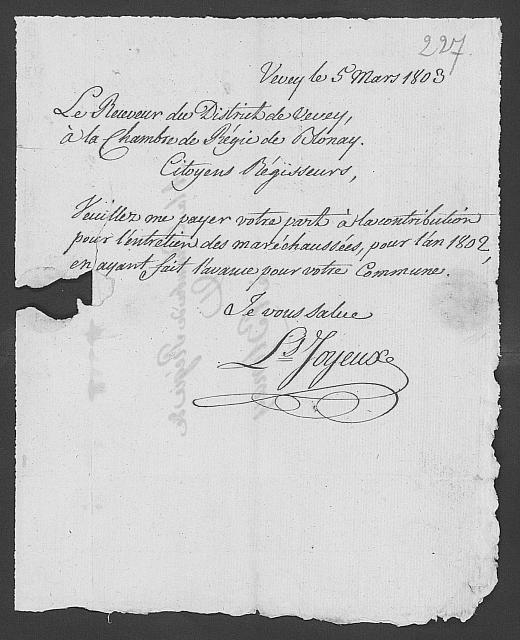 227
Vevey le 5 Mars 1803
Le Receveur du District de Vevey,
à la Chambre de Régie de Blonay.
Citoyens Régisseurs,
Veuillez me payer votre part à la contribution
pour l'entretien des maréchaussées, pour l'an 1802,
en ayant fait l'avance pour votre Commune.
Je vous salue
Ls Joyeux